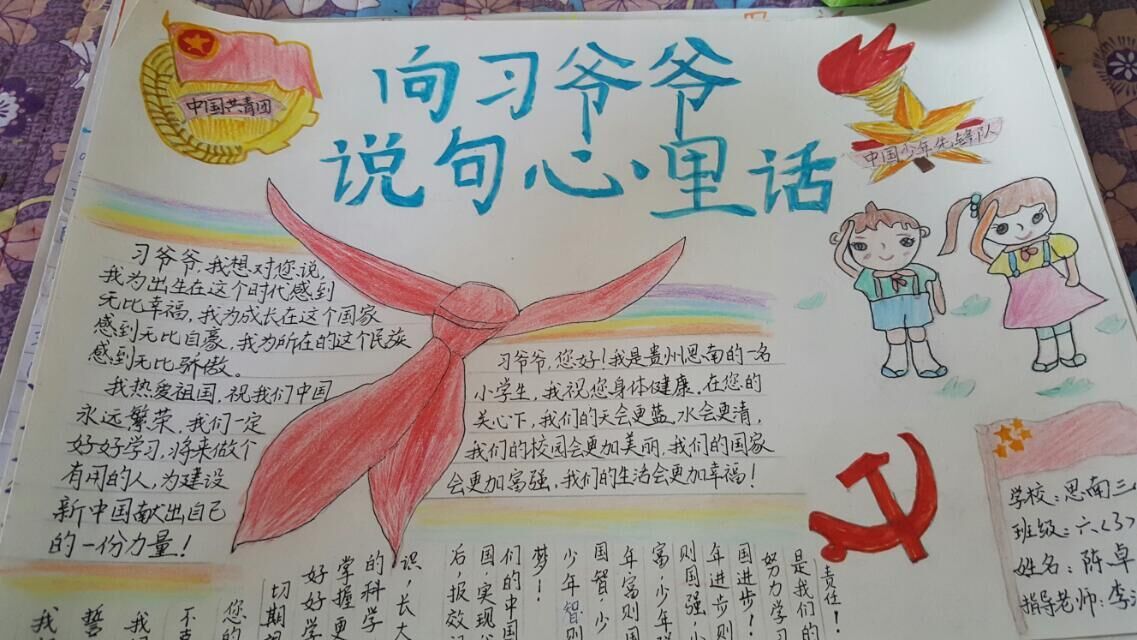 中国共青团
向习爷爷
说句心里话
中国少年先锋队
习爷爷,我想对您说,
我为出生在这个时代感到
无比幸福,我为成长在这个国家
感到无比自豪,我为所在的这个民族
感到无比骄傲。
我热爱祖国,祝我们中国
永远繁荣,我们一定
好好学习,将来做个
有用的人,为建设
新中国献出自己
的一份力量!
习爷爷,您好!我是贵州思南的一名
小学生,我祝您身体健康。在您的
关心下,我们的天会更蓝,水会更清,
我们的校园会更加美丽,我们的国家
会更加富强,我们的生活会更加幸福!
学校:思南三
班级:六(3)
姓名:陈卓
指导老师:李
责任!
是我们的
努力学习
国进步!
年进步则
则国强,小
富,少年强
年富则国
国智,少
少年智则
梦!
们的中国
国,实现
后,报效
识,长大
的科学
掌握更
好好学
切期望
您的
不
我
誓
我